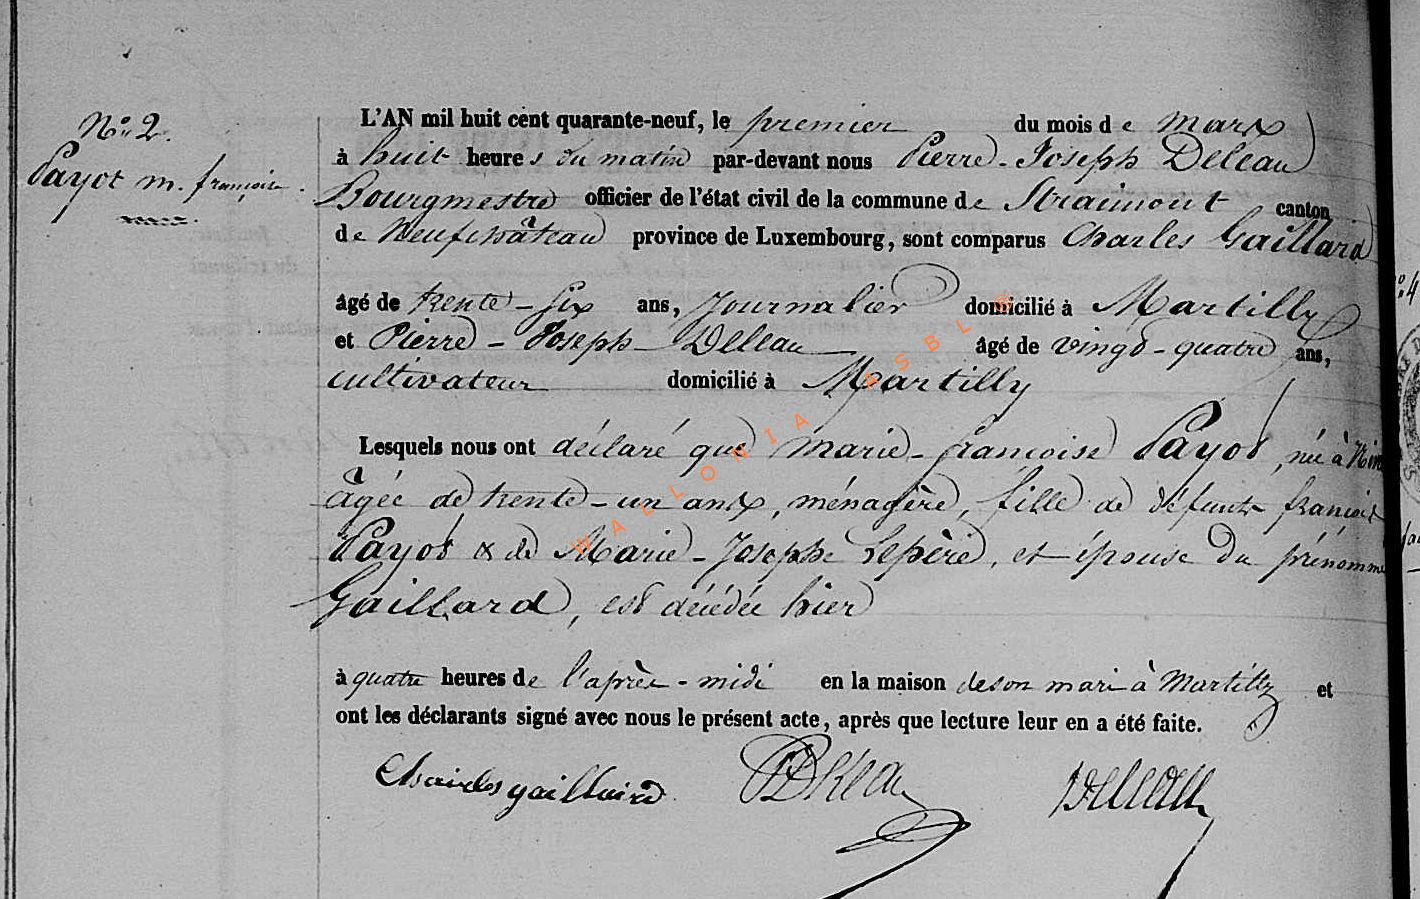 N.o 2.
Payot m. françoise.
L'AN mil huit cent quarante-neuf, le premier du mois de mars
à huit heures du matin par-devant nous Pierre-Joseph Deleau
Bourgmestre officier de l'état civil de la commune de Straimont canton
de Neufchâteau province de Luxembourg, sont comparus Charles Gaillard
âgé de trente-six ans, Journalier domicilié à Martilly
et Pierre-Joseph Deleau âgé de vingt-quatre ans,
cultivateur domicilié à Martilly
Lesquels nous ont déclaré que marie-françoise Payot, née à
âgée de trente-un ans, ménagère, fille de défunts françois
Payot & de Marie-Josephe Lepère, et épouse du prénommé
Gaillard, est décédée hier
à quatre heures de l'après-midi en la maison de son mari à Martilly et
ont les déclarants signé avec nous le présent acte, après que lecture leur en a été faite.
Charles gaillard PJDeleau Deleau
WALLONIA ASBL ©